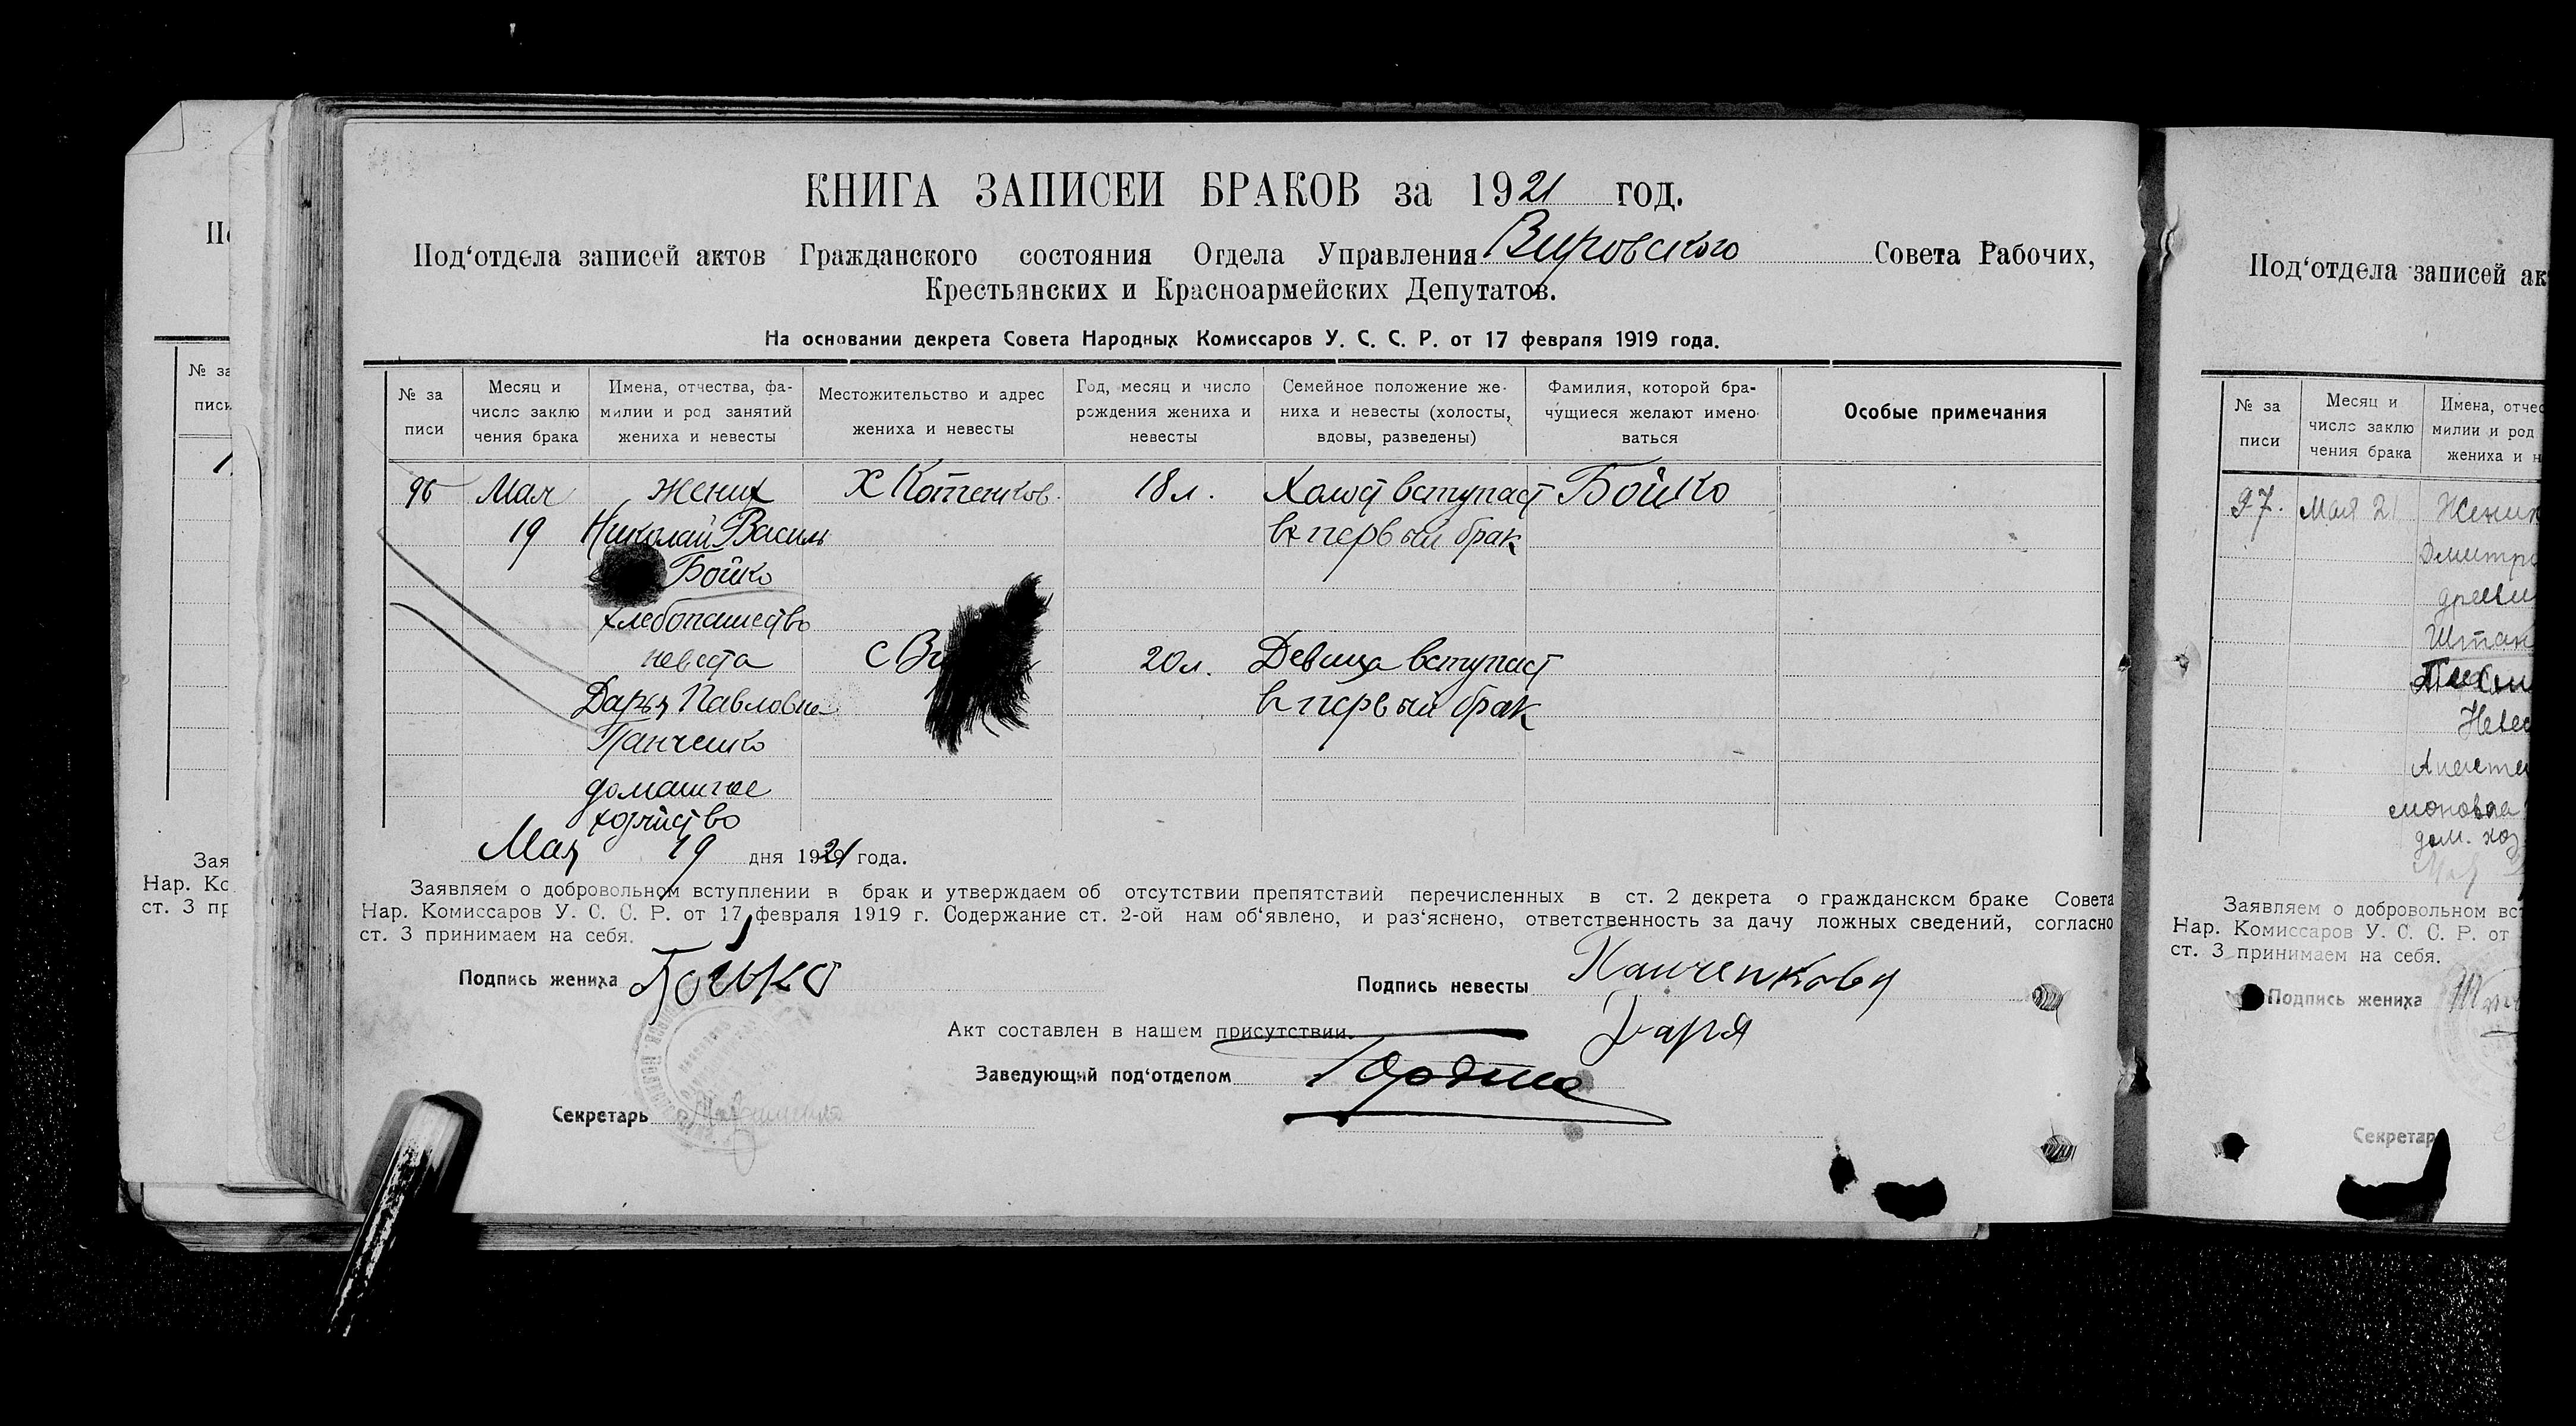 КНИГА ЗАПИСЕЙ БРАКОВ за 1921 год.
Под‘отдела записей актов Гражданского состояния Отдела Управления Вировского Совета Рабочих,
Крестьянских и Красноармейских Депутатов.
На основании декрета Совета Народных Комиссаров У. С. С. Р. от 17 февраля 1919 года.
№ за писи
Месяц и число заклю чения брака
Имена, отчества, фа- милии и род занятий жениха и невесты
Местожительство и адрес жениха и невесты
Год, месяц и число рождения жениха и невесты
Семейное положение же- ниха и невесты (холосты, вдовы, разведены)
Фамилия, которой бра- чущиеся желают имено- ваться
Особые примечания
96 Мая жених Х Котенков. 18 л. Холост вступает Бойко
19 Николай Василь в первый брак
Бойко
хлебопашество
невеста с 20 л. Девица вступает
Дарья Павловна в первый брак
Панченко
домашнее
хозяйство
Мая 19 дня 1921 года.
Заявляем о добровольном вступлении в брак и утверждаем об отсутствии препятствий перечисленных в ст. 2 декрета о гражданском браке Совета
Нар. Комиссаров У. С. С. Р. от 17 февраля 1919 г. Содержание ст. 2-ой нам об‘явлено, и раз‘яснено, ответственность за дачу ложных сведений, согласно
ст. 3 принимаем на себя.
Подпись жениха Бойко Подпись невесты Панченкова
Даря
Акт составлен в нашем присутствии.
Заведующий под‘отделом
Секретарь
№ за
писи
Зая
Нар. Ко
ст. 3 пр
Под‘отдела записей ак
№ за писи
Месяц и число заклю чения брака
Имена, отчес милии и род жениха и н
97. Мая 21 Жених
Дмитро
Штан
Невес
моновна
дом. хоз
Заявляем о добровольном вст
Нар. Комиссаров У. С. С. Р. от
ст. 3 принимаем на себя.
Подпись жениха
Секретар